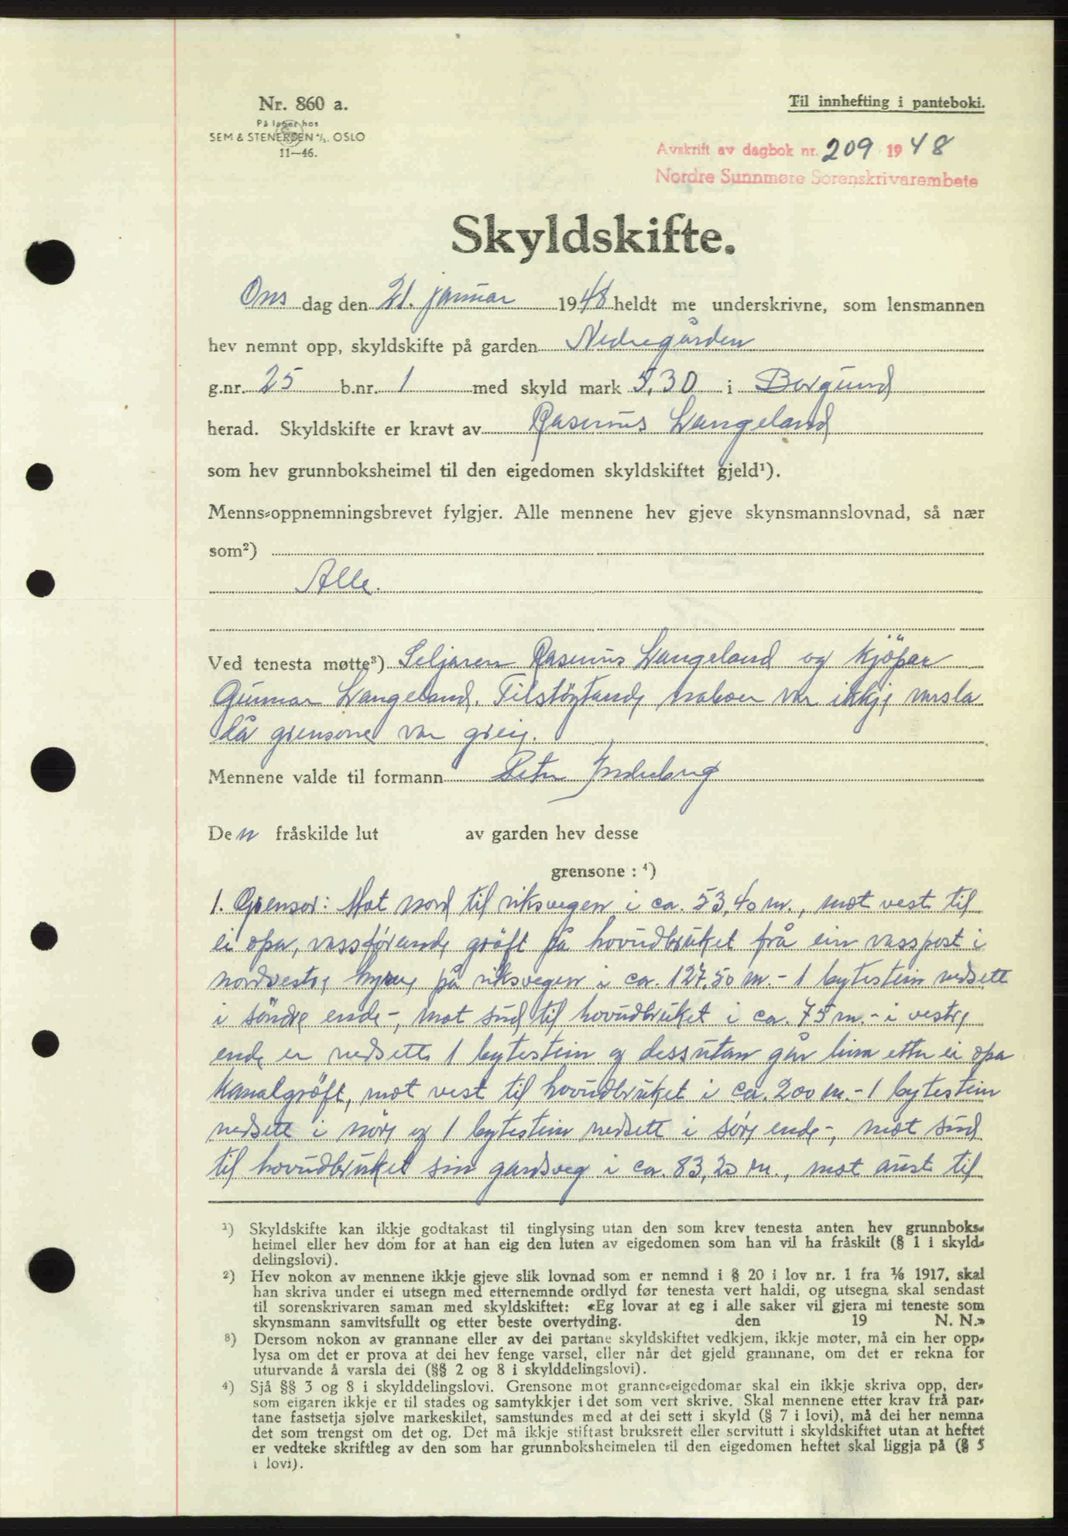 Nr. 860 a.
På lager hos
SEM & STENERSEN A/S. OSLO
11-46.
Til innhefting i panteboki.
Avskrift av dagbok nr. 209 1948
Nordre Sunnmøre Sorenskrivarembete
Skyldskifte.
Ons dag den 21. januar 1948 heldt me underskrivne, som lensmannen
hev nemnt opp, skyldskifte på garden Nedregården
g.nr. 25 b.nr. 1 med skyld mark 5,30 i Borgund
herad. Skyldskifte er kravt av Rasmus Langeland
som hev grunnboksheimel til den eigedomen skyldskiftet gjeld¹).
Menns-oppnemningsbrevet fylgjer. Alle mennene hev gjeve skynsmannslovnad, så nær
som²)
Alle.
Ved tenesta møtte³) Seljaren Rasmus Langeland og kjöpar
Gunnar Langeland. Tilstöytande naboer var ikkje varsla
då grensone var greie.
Mennene valde til formann Peter Inderberg
Den fråskilde lut av garden hev desse
grensone : ⁴)
1. Grensor: Mot nord til riksvegen i ca. 53,40 m., mot vest til
ei opa, vassførande gröft på hovudbruket frå ein vasspost i
nordvestre hyrne på riksvegen i ca. 127,50 m. - 1 bytestein nedsett
i söndre ende -, mot sud til hovudbruket i ca. 75 m. - i vestre
ende er nedsett 1 bytestein og dessutan går lina etter ei opa
kanalgröft, mot vest til hovudbruket i ca. 200 m. - 1 bytestein
nedsett i nørre og 1 bytestein nedsett i sørre ende -, mot sud
til hovudbruket sin gardsveg i ca. 83,20 m., mot aust til
¹) Skyldskifte kan ikkje godtakast til tinglysing utan den som krev tenesta anten hev grunnboks-
heimel eller hev dom for at han eig den luten av eigedomen som han vil ha fråskilt (§ 1 i skyld-
delingslovi).
²) Hev nokon av mennene ikkje gjeve slik lovnad som er nemnd i § 20 i lov nr. 1 fra 1/6 1917, skal
han skriva under ei utsegn med etternemnde ordlyd før tenesta vert haldi, og utsegna skal sendast
til sorenskrivaren saman med skyldskiftet: «Eg lovar at eg i alle saker vil gjera mi teneste som
skynsmann samvitsfullt og etter beste overtyding. den 19 N. N.»
³) Dersom nokon av grannane eller av dei partane skyldskiftet vedkjem, ikkje møter, må ein her opp-
lysa om det er prova at dei hev fenge varsel, eller når det gjeld grannane, om det er rekna for
uturvande å varsla dei (§§ 2 og 8 i skylddelingslovi).
⁴) Sjå §§ 3 og 8 i skylddelingslovi. Grensone mot granne-eigedomar skal ein ikkje skriva opp, der-
som eigaren ikkje er til stades og samtykkjer i det som vert skrive. Skal mennene etter krav frå par-
tane fastsetja sjølve markeskilet, samstundes med at dei sett i skyld (§ 7 i lovi), må dei her nemna
det som trengst om det og. Det må ikkje stiftast bruksrett eller servitutt i skyldskiftet utan at heftet
er vedteke skriftleg av den som har grunnboksheimelen til den eigedomen heftet skal liggja på (§ 5
i lovi).